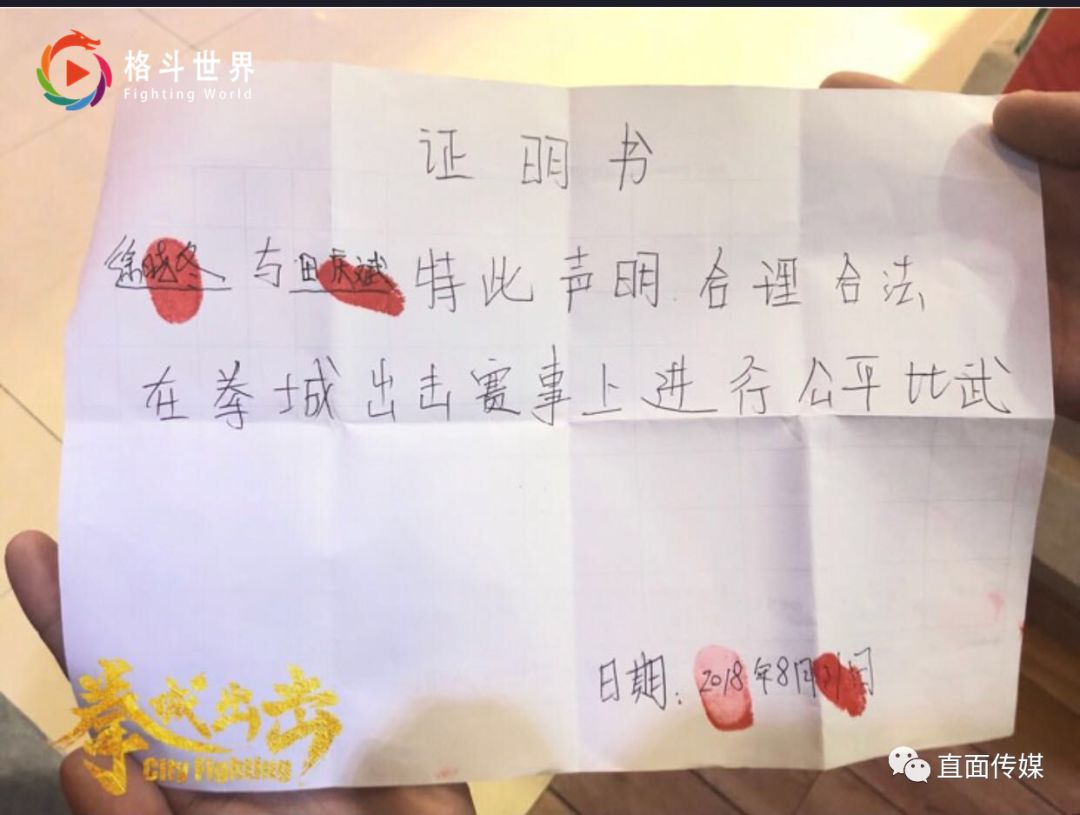 格斗世界
Fighting World
证明书
徐晓冬与田庆斌特此声明合理合法
在拳城出击赛事上进行公平比武
日期:2018年8月31日
拳城出击
City Fighting
直面传媒